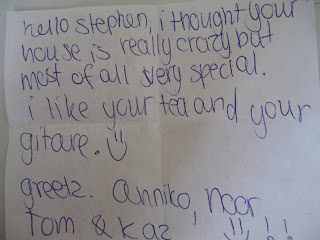 hello stephen, i thought your
house is really crazy but
most of all very special.
i like your tea and your
gitare. :)
greetz. anniko, noor
tom & kaz !! !!